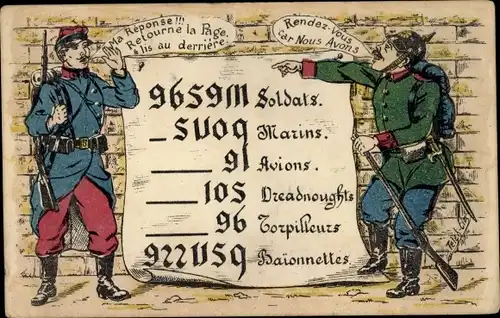 Ma Réponse!!!
Retourne la Page,
& lis au derrière.
Rendez-vous
Car Nous Avons
96S9M Soldats.
_SUOq Marins.
___91 Avions.
___10S Dreadnoughts
___96 Torpilleurs
922USq Baïonnettes